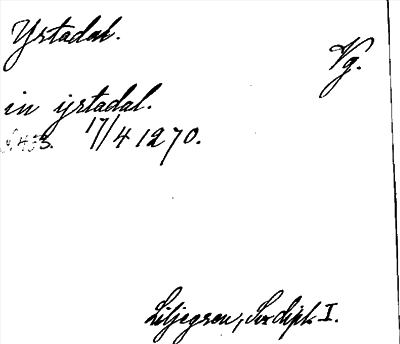 Ystadal.
Vg.
in ystadal.
17/4 1270.
Liljegren, Sv. dipl. I.